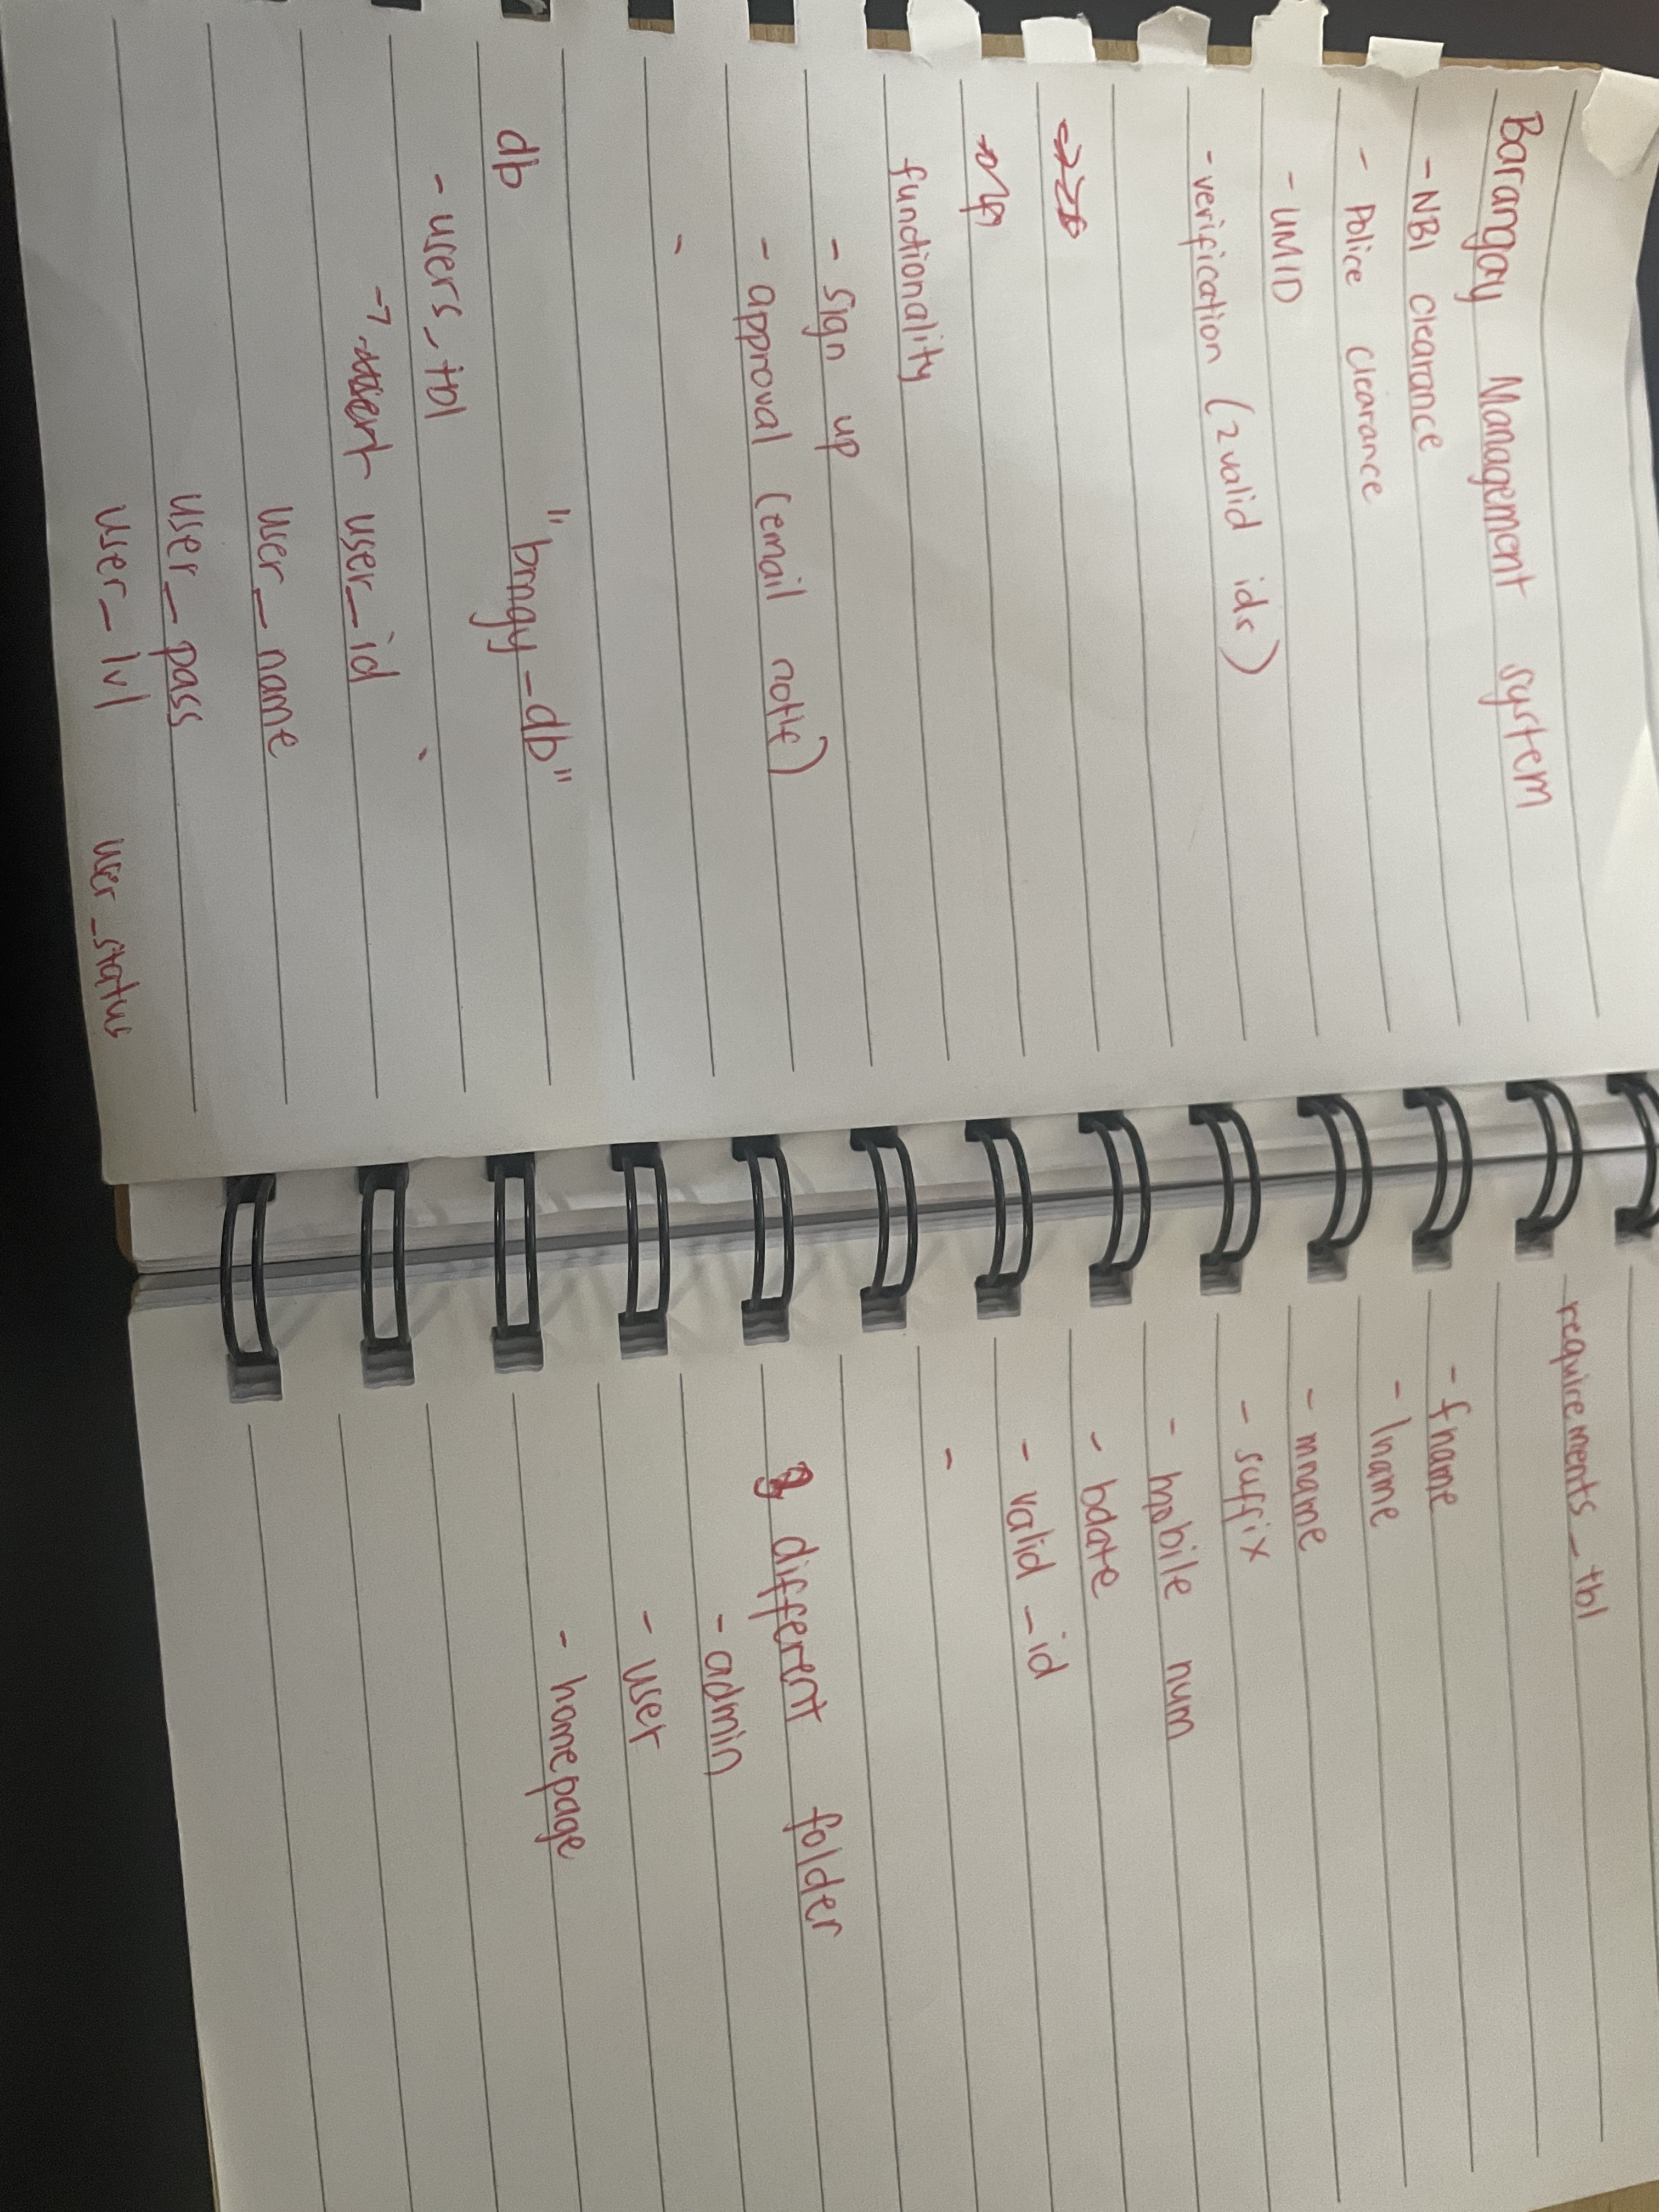 Barangay Management system
- NBI clearance
- Police Clearance
- UMID
- verification (2 valid ids)
functionality
- sign up
- approval (email notif)
-
db "brngy_db"
- users_tbl
→ user_id
user_name
user_pass
user_lvl user_status
requirements_tbl
- fname
- lname
- mname
- suffix
- mobile num
- bdate
- valid_id
-
different folder
- admin
- user
- homepage